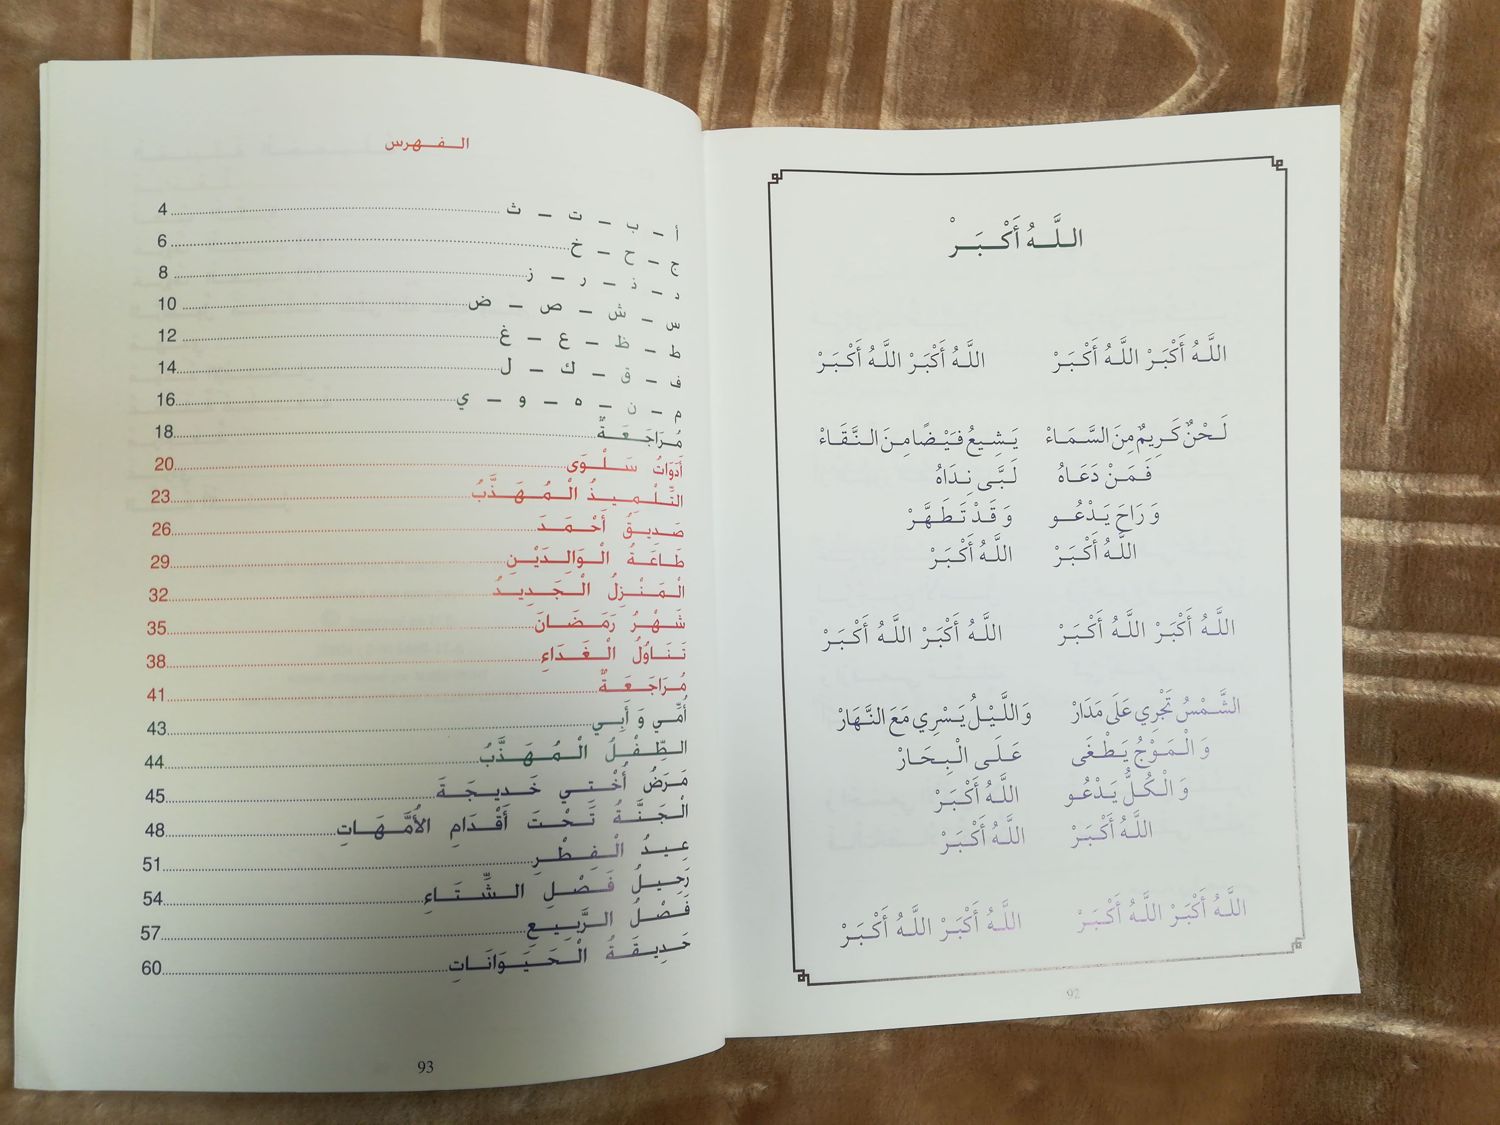 اللَّهُ أَكْبَرْ
اللَّهُ أَكْبَرْ اللَّهُ أَكْبَرْ اللَّهُ أَكْبَرْ اللَّهُ أَكْبَرْ
لَحْنٌ كَرِيمٌ مِنَ السَّمَاءْ يَشِيعُ فَيْضًا مِنَ النَّقَاءْ
فَمَنْ دَعَاهُ لَبَّى نِدَاهُ
وَ رَاحَ يَدْعُو وَ قَدْ تَطَهَّرْ
اللَّهُ أَكْبَرْ اللَّهُ أَكْبَرْ
اللَّهُ أَكْبَرْ اللَّهُ أَكْبَرْ اللَّهُ أَكْبَرْ اللَّهُ أَكْبَرْ
الشَّمْسُ تَجْرِي عَلَى مَدَارْ وَاللَّيْلُ يَسْرِي مَعَ النَّهَارْ
وَ الْمَوْجُ يَطْغَى عَلَى الْبِحَارْ
وَ الْكُلُّ يَدْعُو اللَّهُ أَكْبَرْ
اللَّهُ أَكْبَرْ اللَّهُ أَكْبَرْ
اللَّهُ أَكْبَرْ اللَّهُ أَكْبَرْ اللَّهُ أَكْبَرْ اللَّهُ أَكْبَرْ
92
الفهرس
أ – ب – ت – ث 4
ج – ح – خ 6
د – ذ – ر – ز 8
س – ش – ص – ض 10
ط – ظ – ع – غ 12
ف – ق – ك – ل 14
م – ن – ه – و – ي 16
مُرَاجَعَةٌ 18
أَدَوَاتُ سَلْوَى 20
التِّلْمِيذُ الْمُهَذَّبُ 23
صَدِيقُ أَحْمَدَ 26
طَاعَةُ الْوَالِدَيْنِ 29
الْمَنْزِلُ الْجَدِيدُ 32
شَهْرُ رَمَضَانَ 35
تَنَاوُلُ الْغَدَاءِ 38
مُرَاجَعَةٌ 41
أُمِّي وَ أَبِي 43
الطِّفْلُ الْمُهَذَّبُ 44
مَرَضُ أُخْتِي خَدِيجَةَ 45
الْجَنَّةُ تَحْتَ أَقْدَامِ الأُمَّهَاتِ 48
عِيدُ الْفِطْرِ 51
رَحِيلُ فَصْلِ الشِّتَاءِ 54
فَصْلُ الرَّبِيعِ 57
حَدِيقَةُ الْحَيَوَانَاتِ 60
93